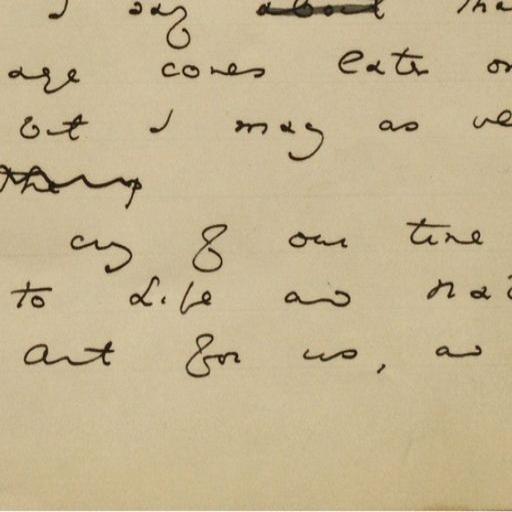 I say about tha
age comes later on
but I may as we
cry of our time
to Life and Nat
art for us, and